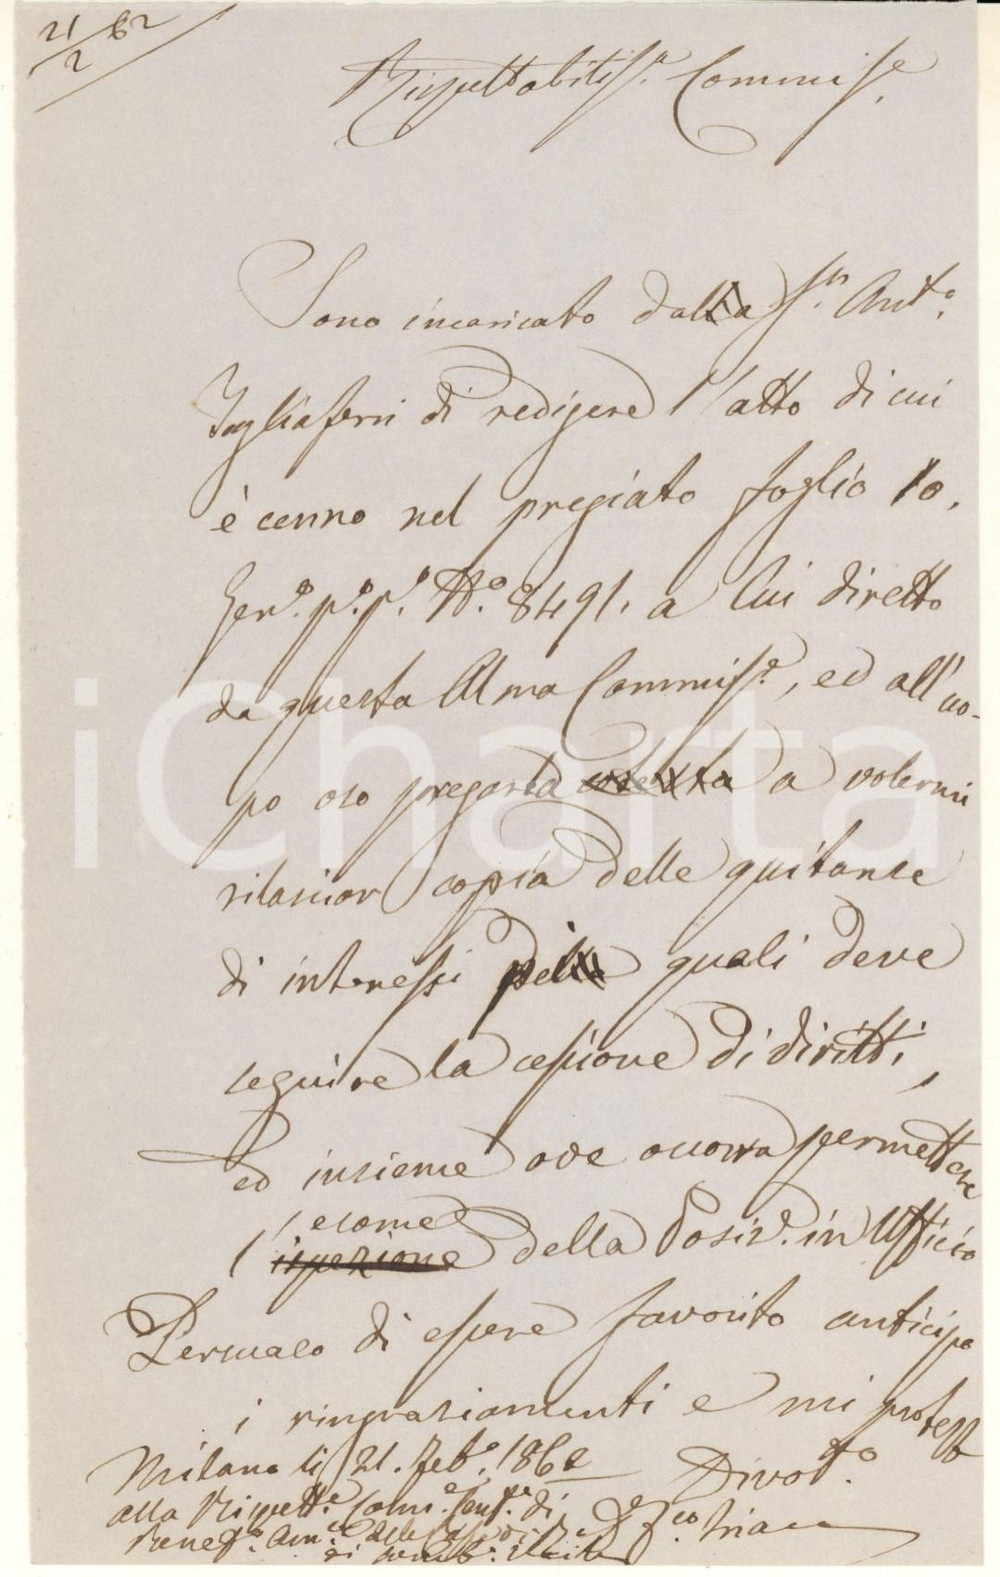 21/2 62
Rispettabiliss.a Commiss.e
Sono incaricato dal S.r Ant.o
Tagliaferri di redigere l'atto di cui
è cenno nel pregiato foglio 10.
Gen.o p.o p.o N.o 8491. a lui diretto
da questa Alma Commiss.e, ed all'uo-
po oso pregarla a volermi
rilasciar copia delle quitanze
di interessi pei quali deve
seguire la cessione di diritti,
ed insieme ove occorra permettere
l'esame
l' ispezione della Posiz.e in Ufficio
Persuaso di essere favorito anticipo
i ringraziamenti e mi protesto
Milano li 21. Feb.o 1862
Divot.o
alla Rispett.e Com.e Cent.e di
Benef.a
D.r F.co
iCharta